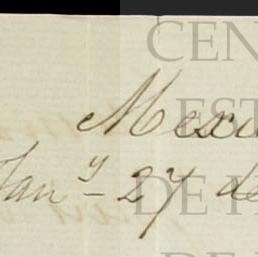 CEN
Mexi
DE EST
Jan y 27 de
DE H